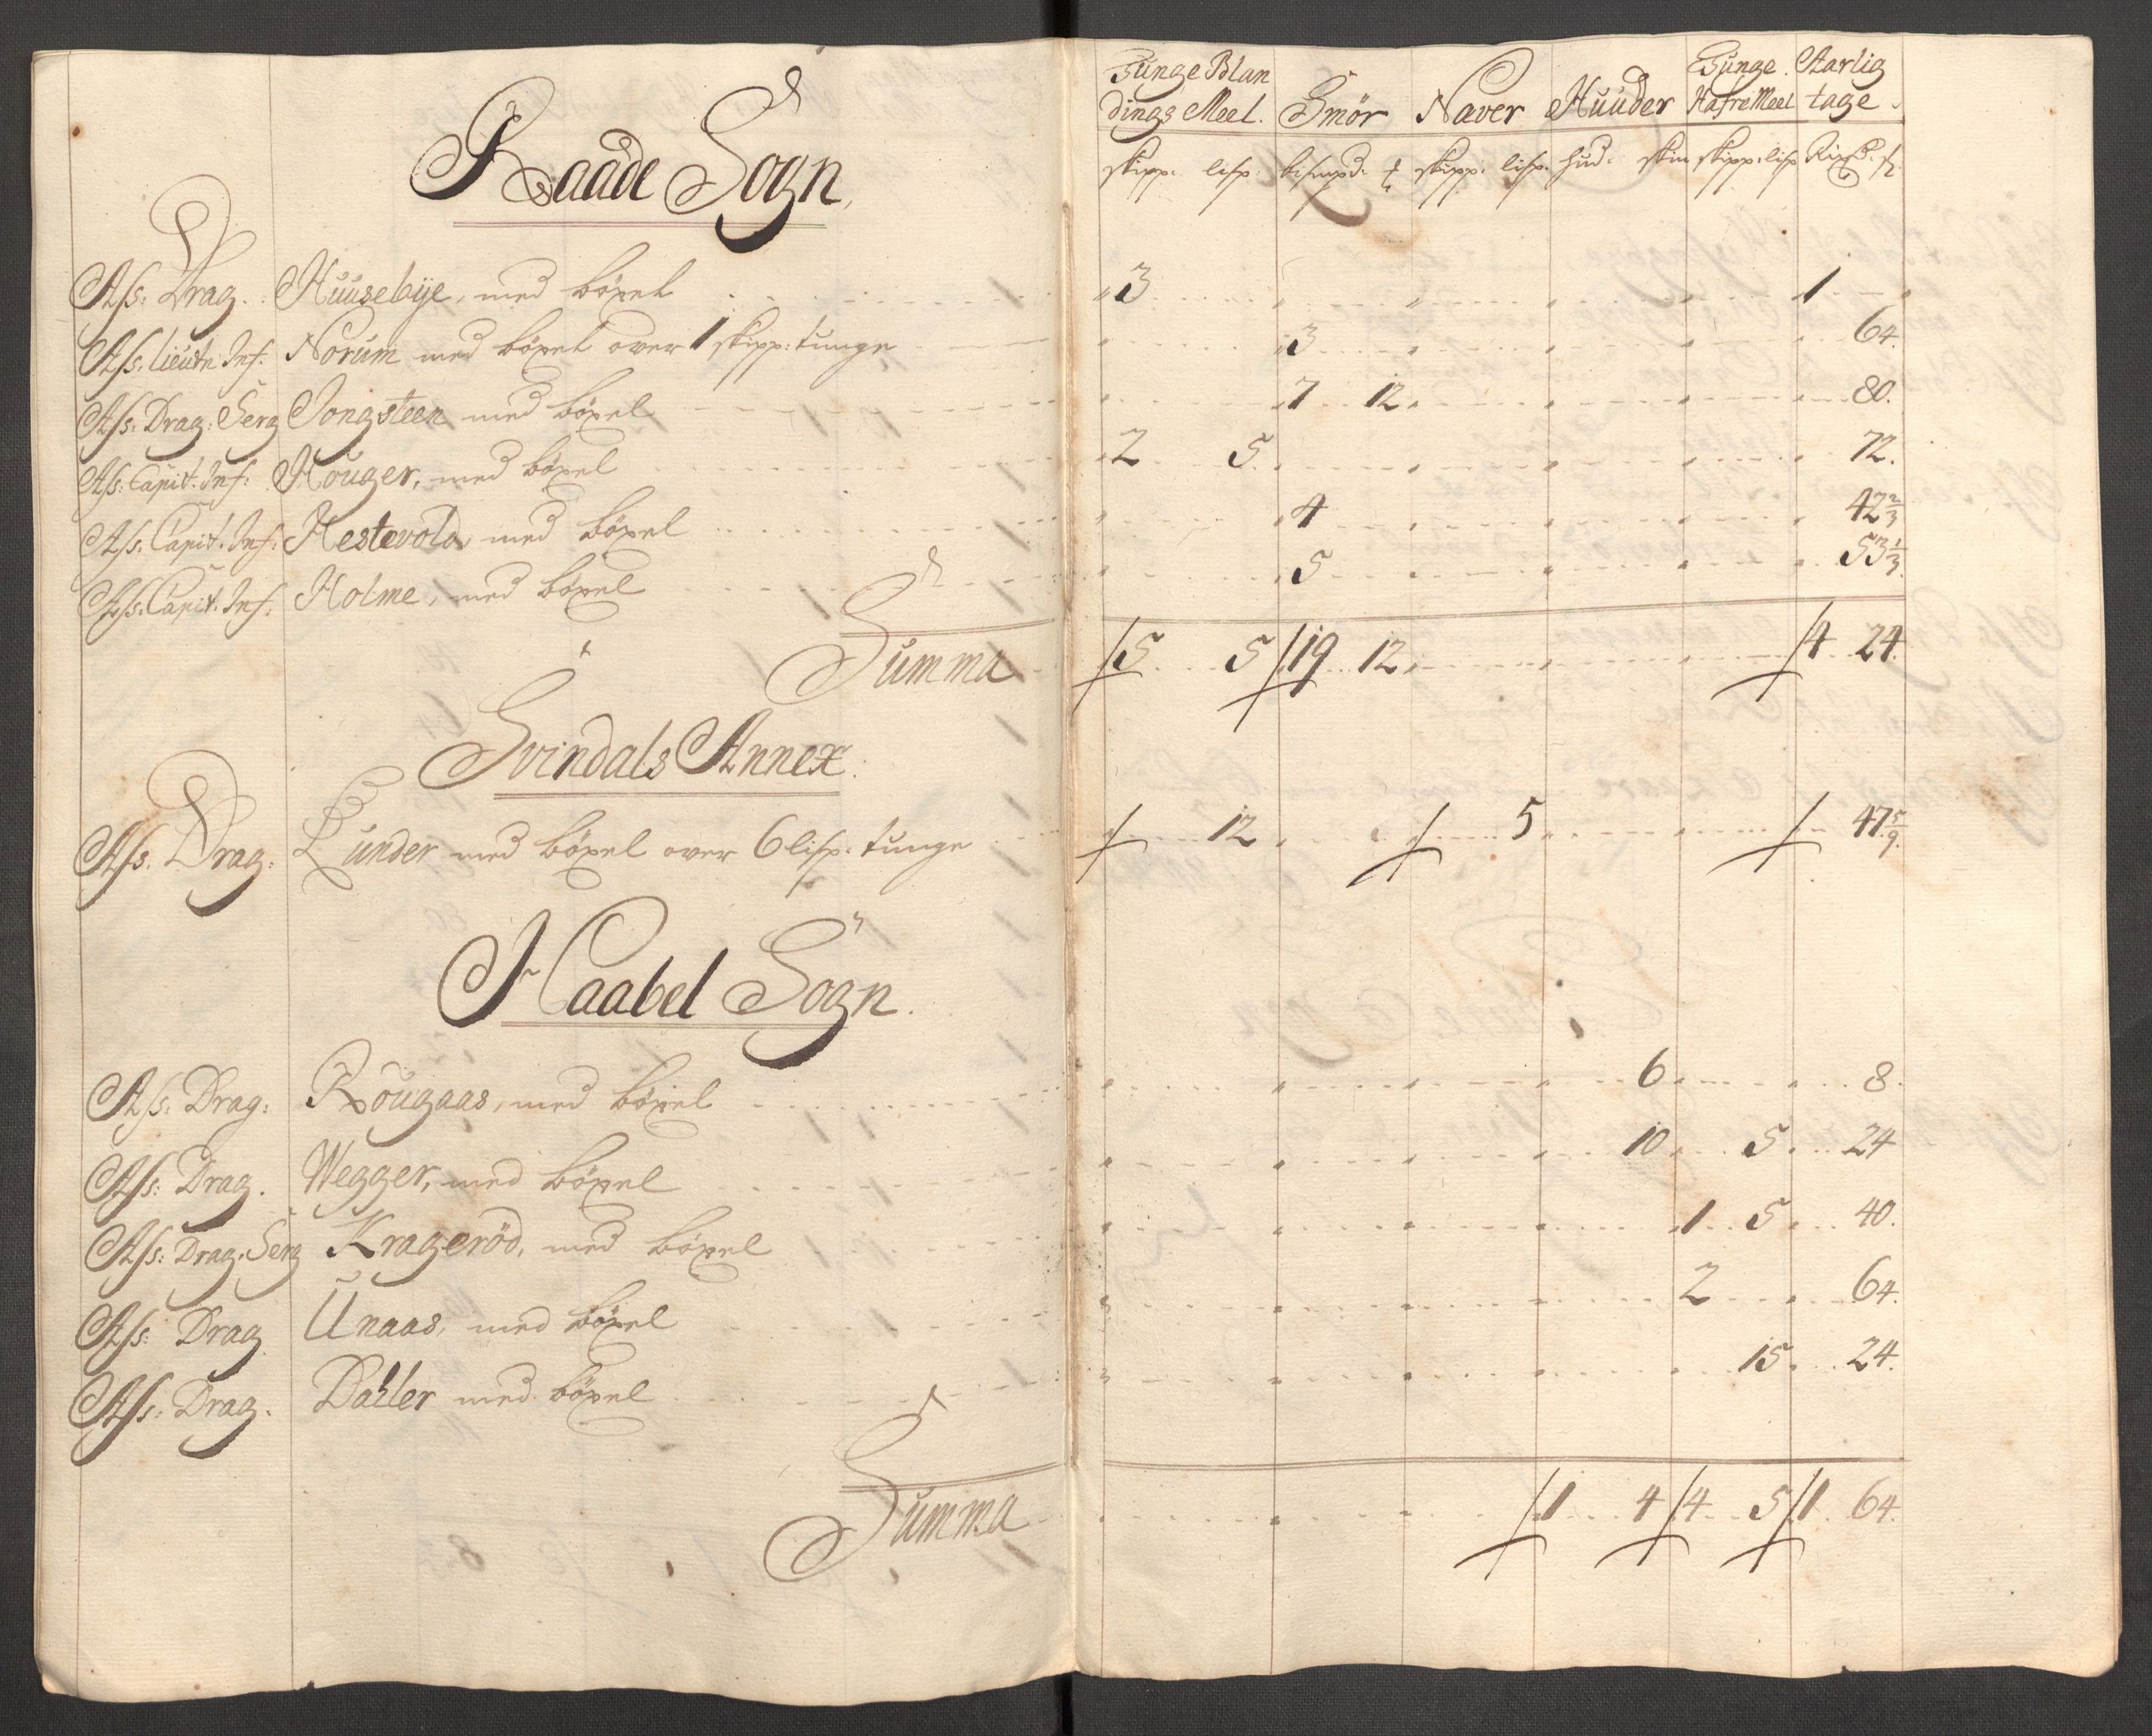 Tunge Blan Tunge Aarlig
dings Meel. Smör Naver Huuder HafreMeel tage.
skipp: lisp. bismpd. skipp: lisp. hud: skin skipp: lisp Rixd. ſz
Raade Sogn
Aſs: Drag. Huusebÿe, med böxel 3 1
Aſs. Lieutn Inf. Norum med böxel over 1 skipp: tunge 3 64.
Aſs: Drag: Serg Jongsteen med böxel 7 12 80.
Aſs: Capit. Inf: Houger, med böxel 2 5 72.
Aſs: Capit. Inf: Hestevold med böxel 4 42 2/3
Aſs. Capit. Inf: Holme, med böxel 5 53 1/3
Summa 5 5 19 12 4 24.
Svindals Annex.
Aſs. Drag: Lunder med böxel over 6 lisp. tunge 12 5 47 5/9.
Haabel Sogn.
Aſs: Drag: Rougaas, med böxel 6 8.
Aſs: Drag. Wegger, med böxel 10 5 24
Aſs: Drag. Serg Krageröd, med böxel 1 5 40.
Aſs: Drag Unaas, med böxel 2 64.
Aſs: Drag. Daller med böxel 15 24.
Summa 1 4 4 5 1 64.